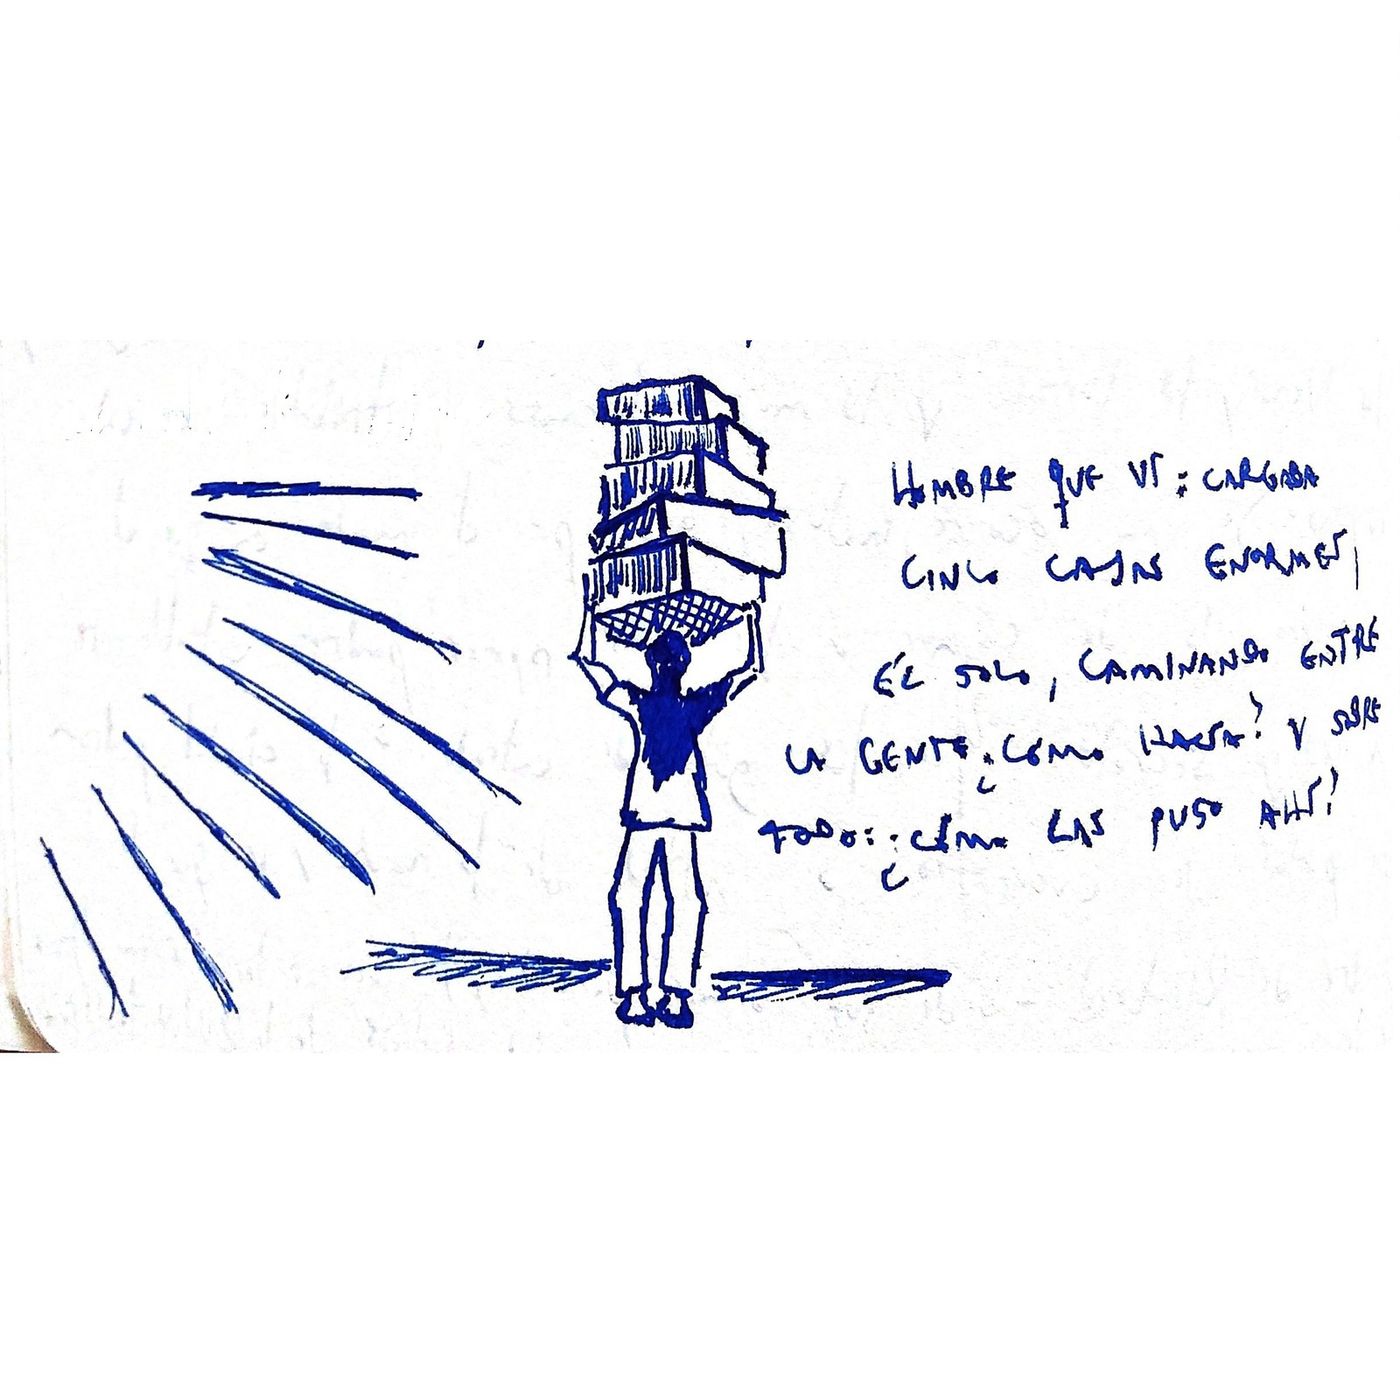 HOMBRE QUE VÍ: CARGABA
CINCO CAJAS ENORMES,
ÉL SOLO, CAMINANDO ENTRE
LA GENTE ¿CÓMO HACÍA? Y SOBRE
TODO: ¿CÓMO LAS PUSO AHÍ?